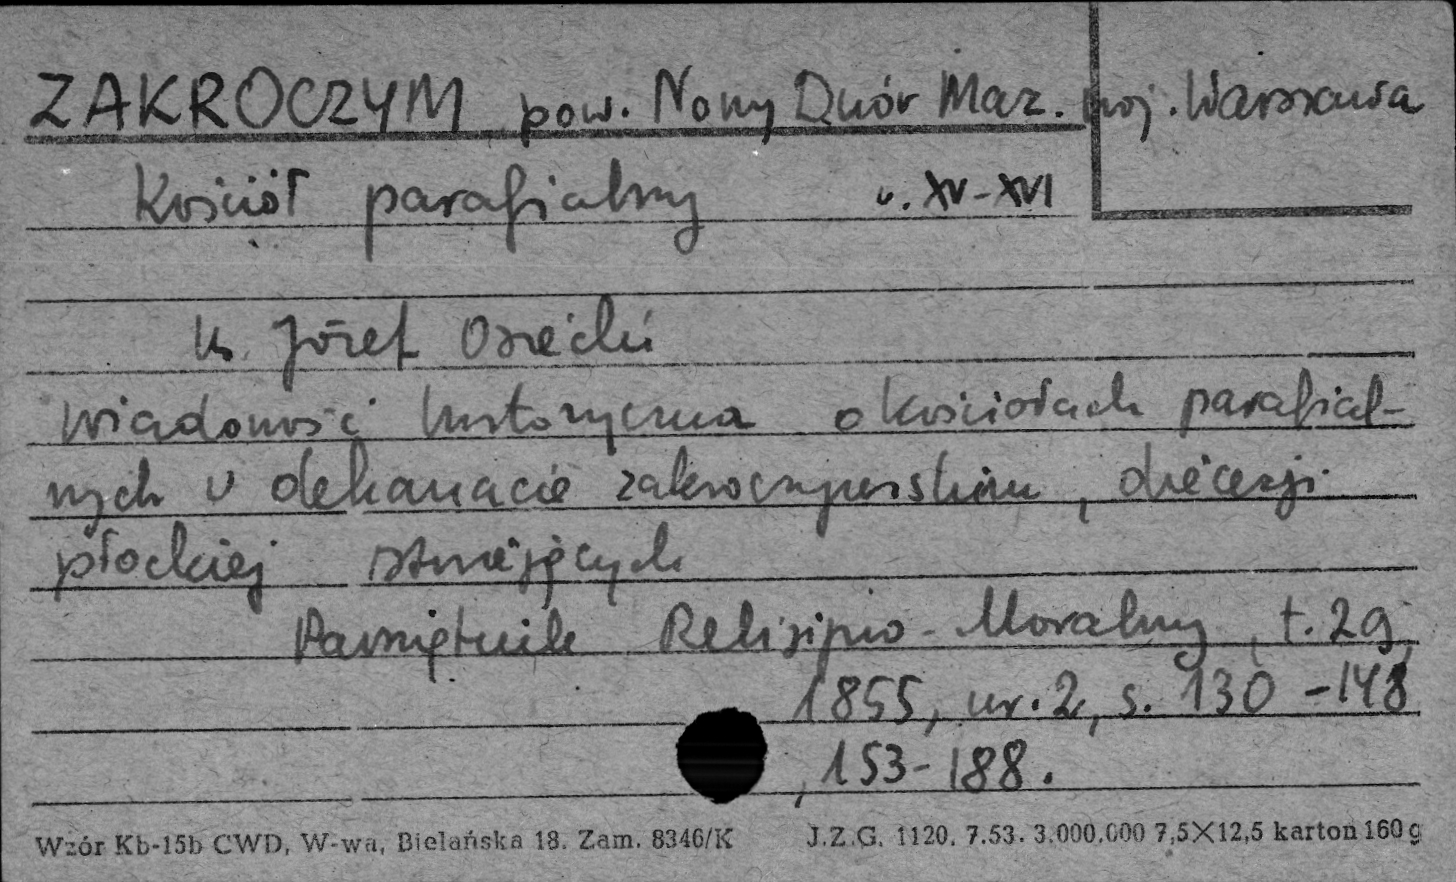 ZAKROCZYM pow. Nowy Dwór Maz. woj. Warszawa
Kościół parafialny w. XV-XVI
ks. Józef Osiecki
Wiadomość historyczna o kościołach parafial-
nych w dekanacie zakroczymskim, diecezji
płockiej istniejących
Pamiętnik Religijno-Moralny, t. 29,
1855, nr. 2, s. 130-148
, 153-188.
Wzór Kb-15b CWD, W-wa, Bielańska 18. Zam. 8346/K J.Z.G. 1120. 7.53. 3.000.000 7,5×12,5 karton 160 g